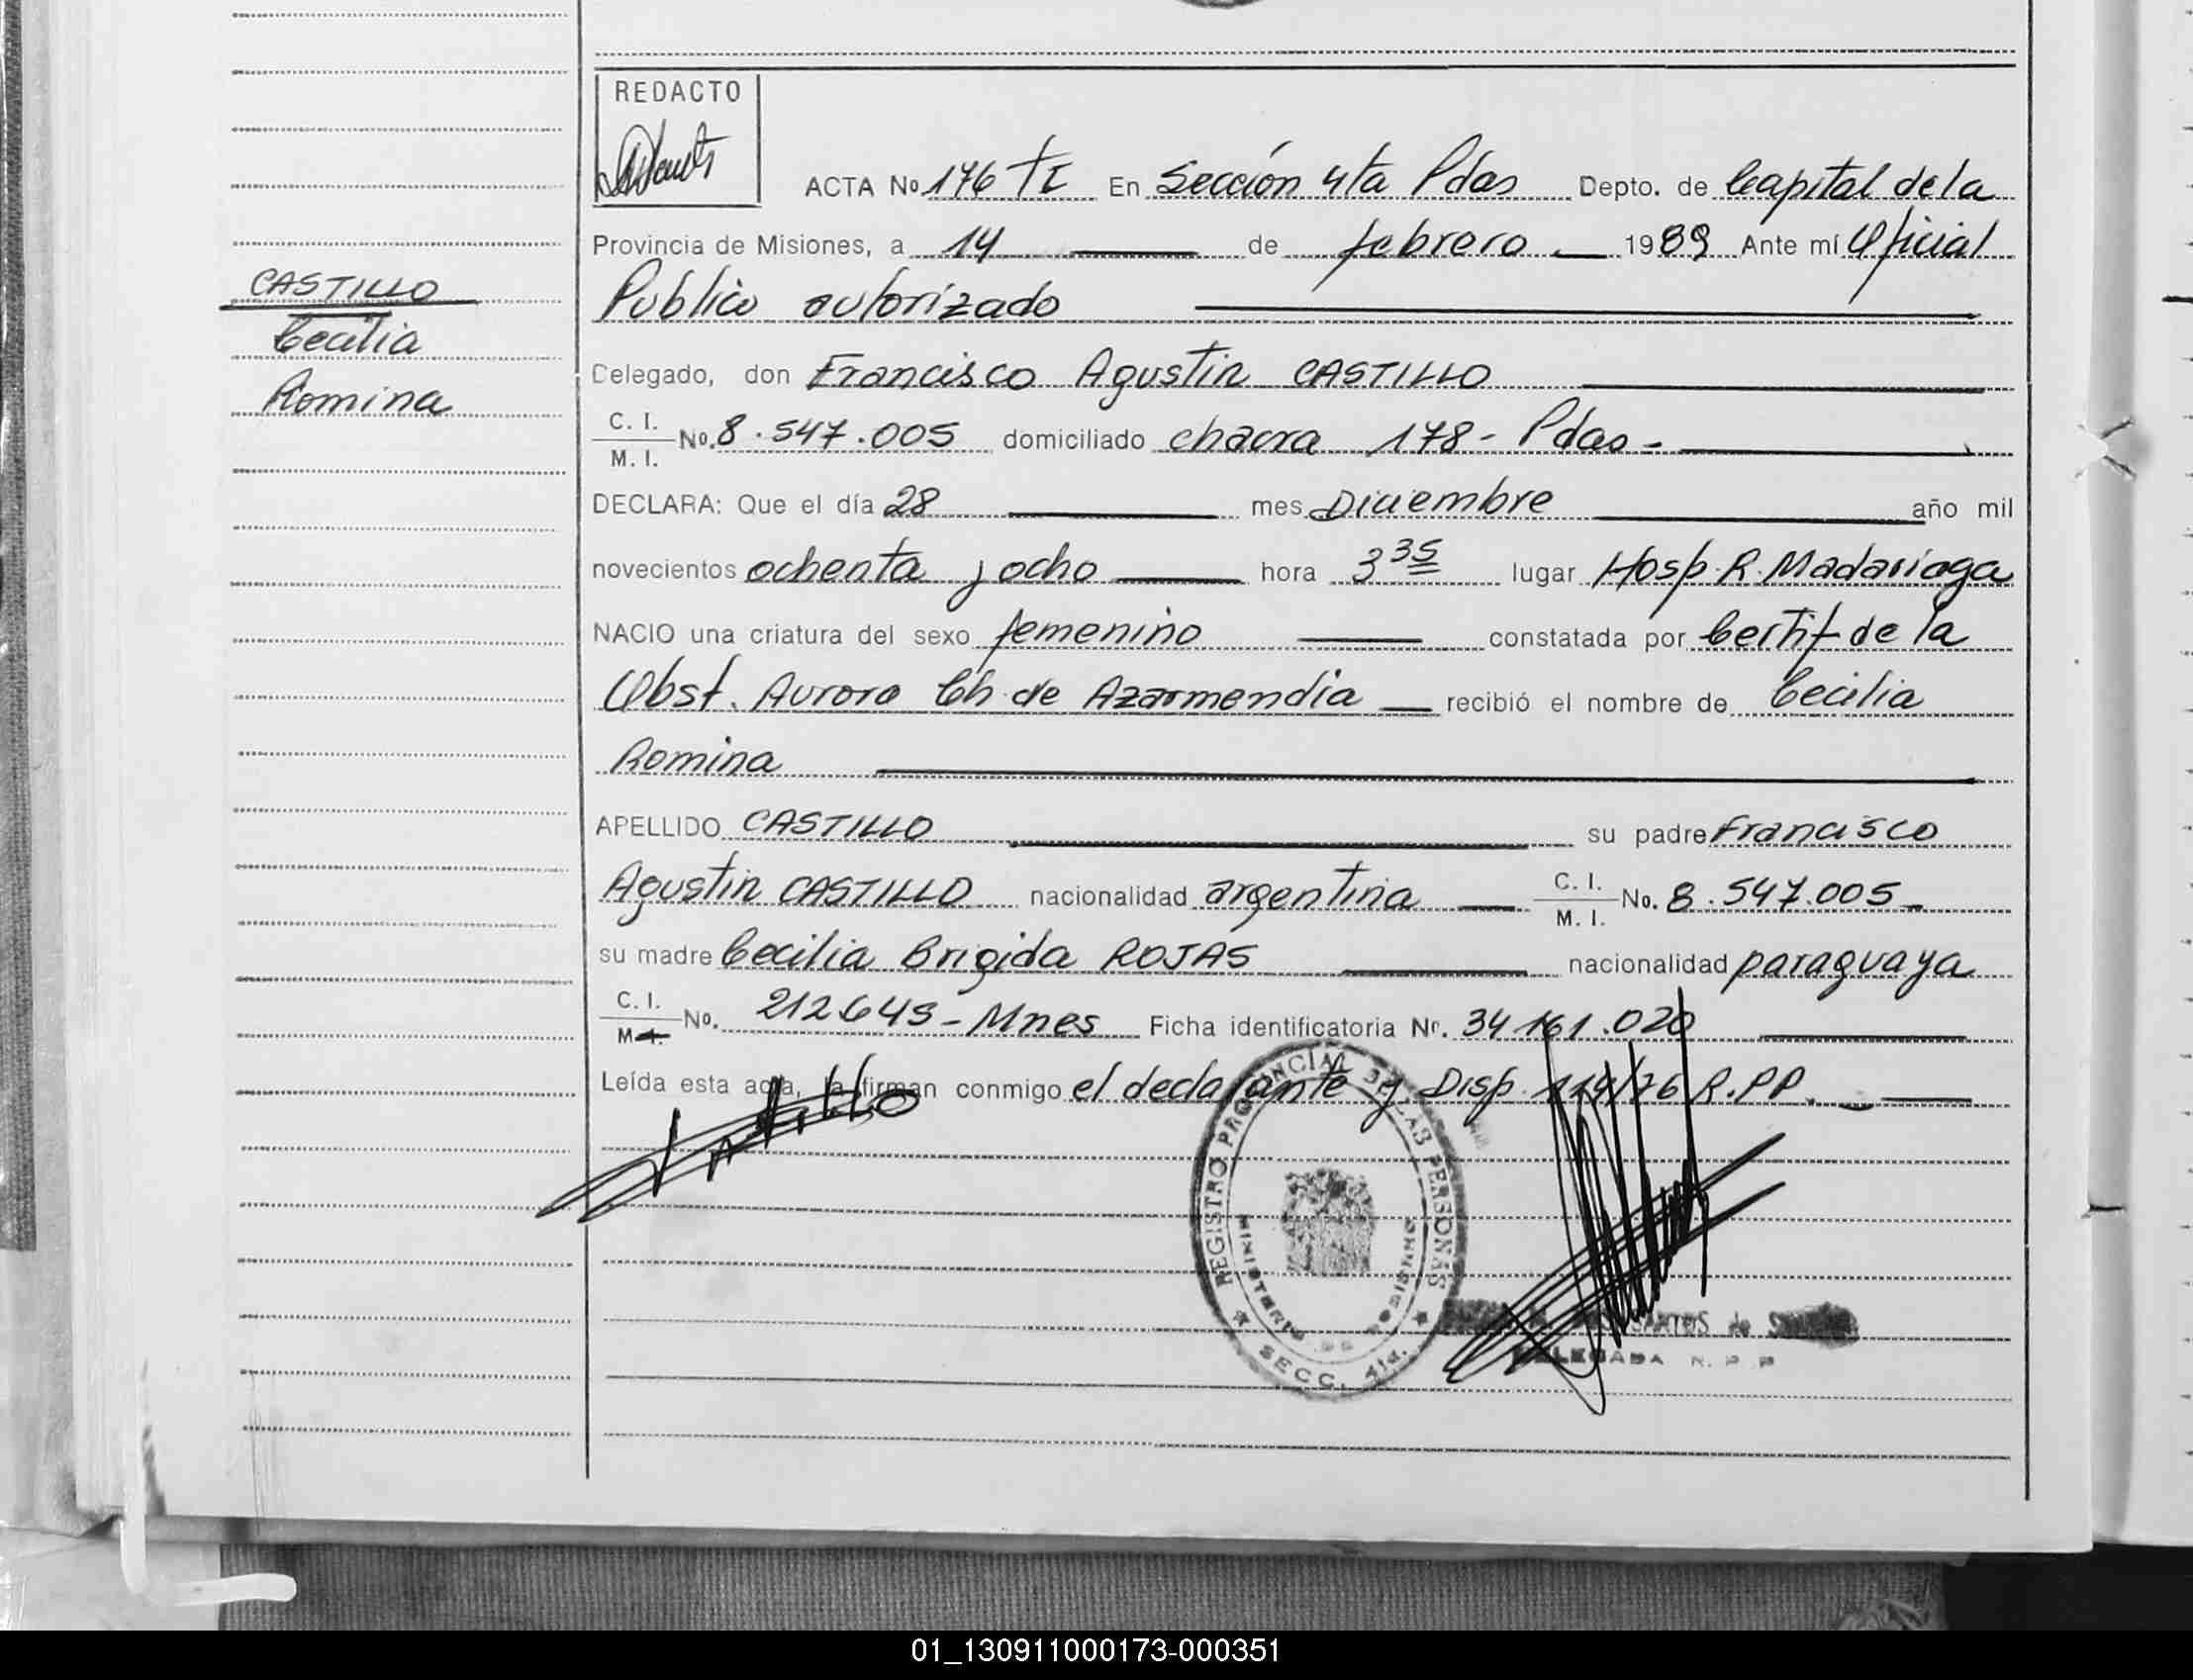 REDACTO
ACTA No 176 TI En Sección 4ta Pdas Depto. de Capital de la
Provincia de Misiones, a 14 de febrero 1989 Ante mí Oficial
Publico autorizado
CASTILLO
Cecilia
Romina
Delegado, don Francisco Agustin CASTILLO
C. I.
M. I.
No. 8.547.005 domiciliado chacra 178- Pdas-
DECLARA: Que el día 28 mes Diciembre año mil
novecientos ochenta y ocho hora 3 35 lugar Hosp. R. Madariaga
NACIO una criatura del sexo femenino constatada por Certif de la
Obst. Aurora Ch. de Azarmendia recibió el nombre de Cecilia
Romina
APELLIDO CASTILLO su padre Francisco
Agustin CASTILLO nacionalidad argentina C. I. M. I. No. 8.547.005-
su madre Cecilia Brigida ROJAS nacionalidad paraguaya
C. I. M. I. No. 212643-Mnes Ficha identificatoria Nº. 34.161.020
Leída esta acta, la firman conmigo el declarante y Disp. 114/76 R.PP.
Castillo
REGISTRO PROVINCIAL DE LAS PERSONAS
MINISTERIO DE MISIONES
SECC. 4ta.
SANTOS de
DELEGADA R. P. P.
01_130911000173-000351